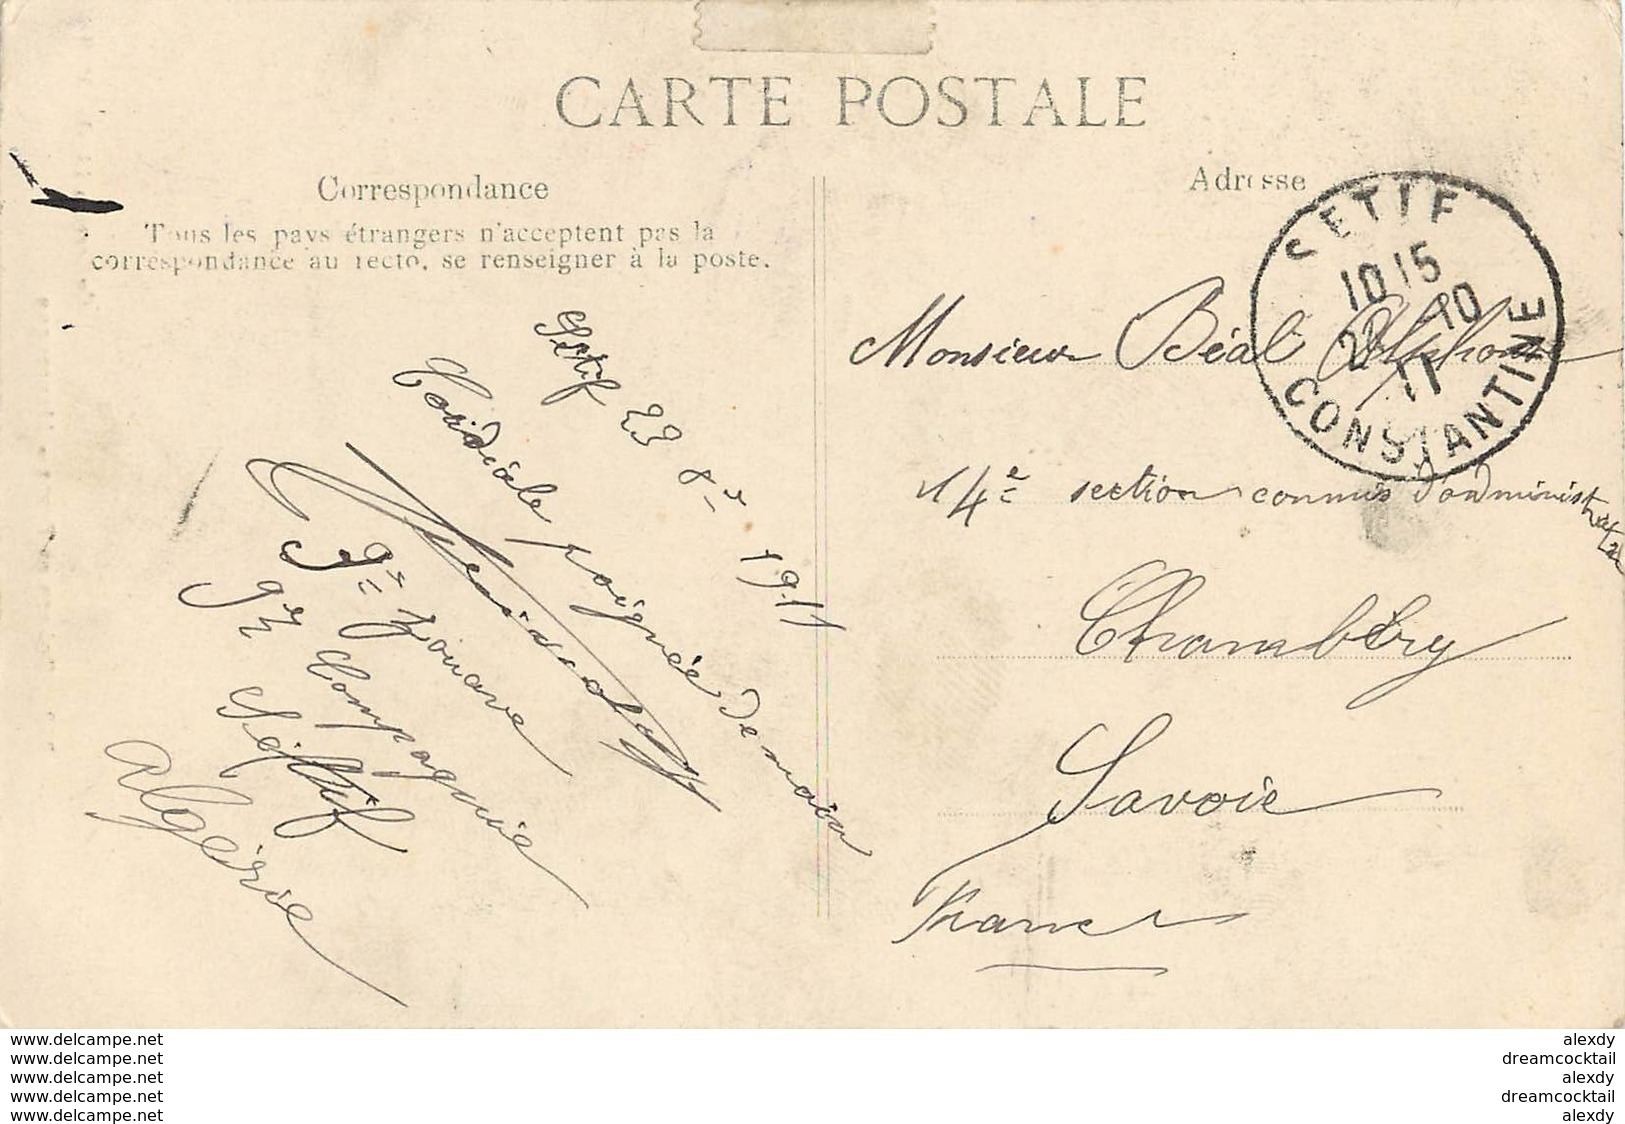 CARTE POSTALE
Correspondance
Tous les pays étrangers n'acceptent pas la
correspondance au recto, se renseigner à la poste.
Adresse
SETIF
10 15
10
11
CONSTANTINE
Setif 23 8re 1911
Cordiale poignée de main
9e zouave
9e Compagnie
Sétif
Algérie
Monsieur Béal Alphonse
14e section commis d'administration
Chambéry
Savoie
France
www.delcampe.net
www.delcampe.net
www.delcampe.net
www.delcampe.net
www.delcampe.net
alexdy
dreamcocktail
alexdy
dreamcocktail
alexdy